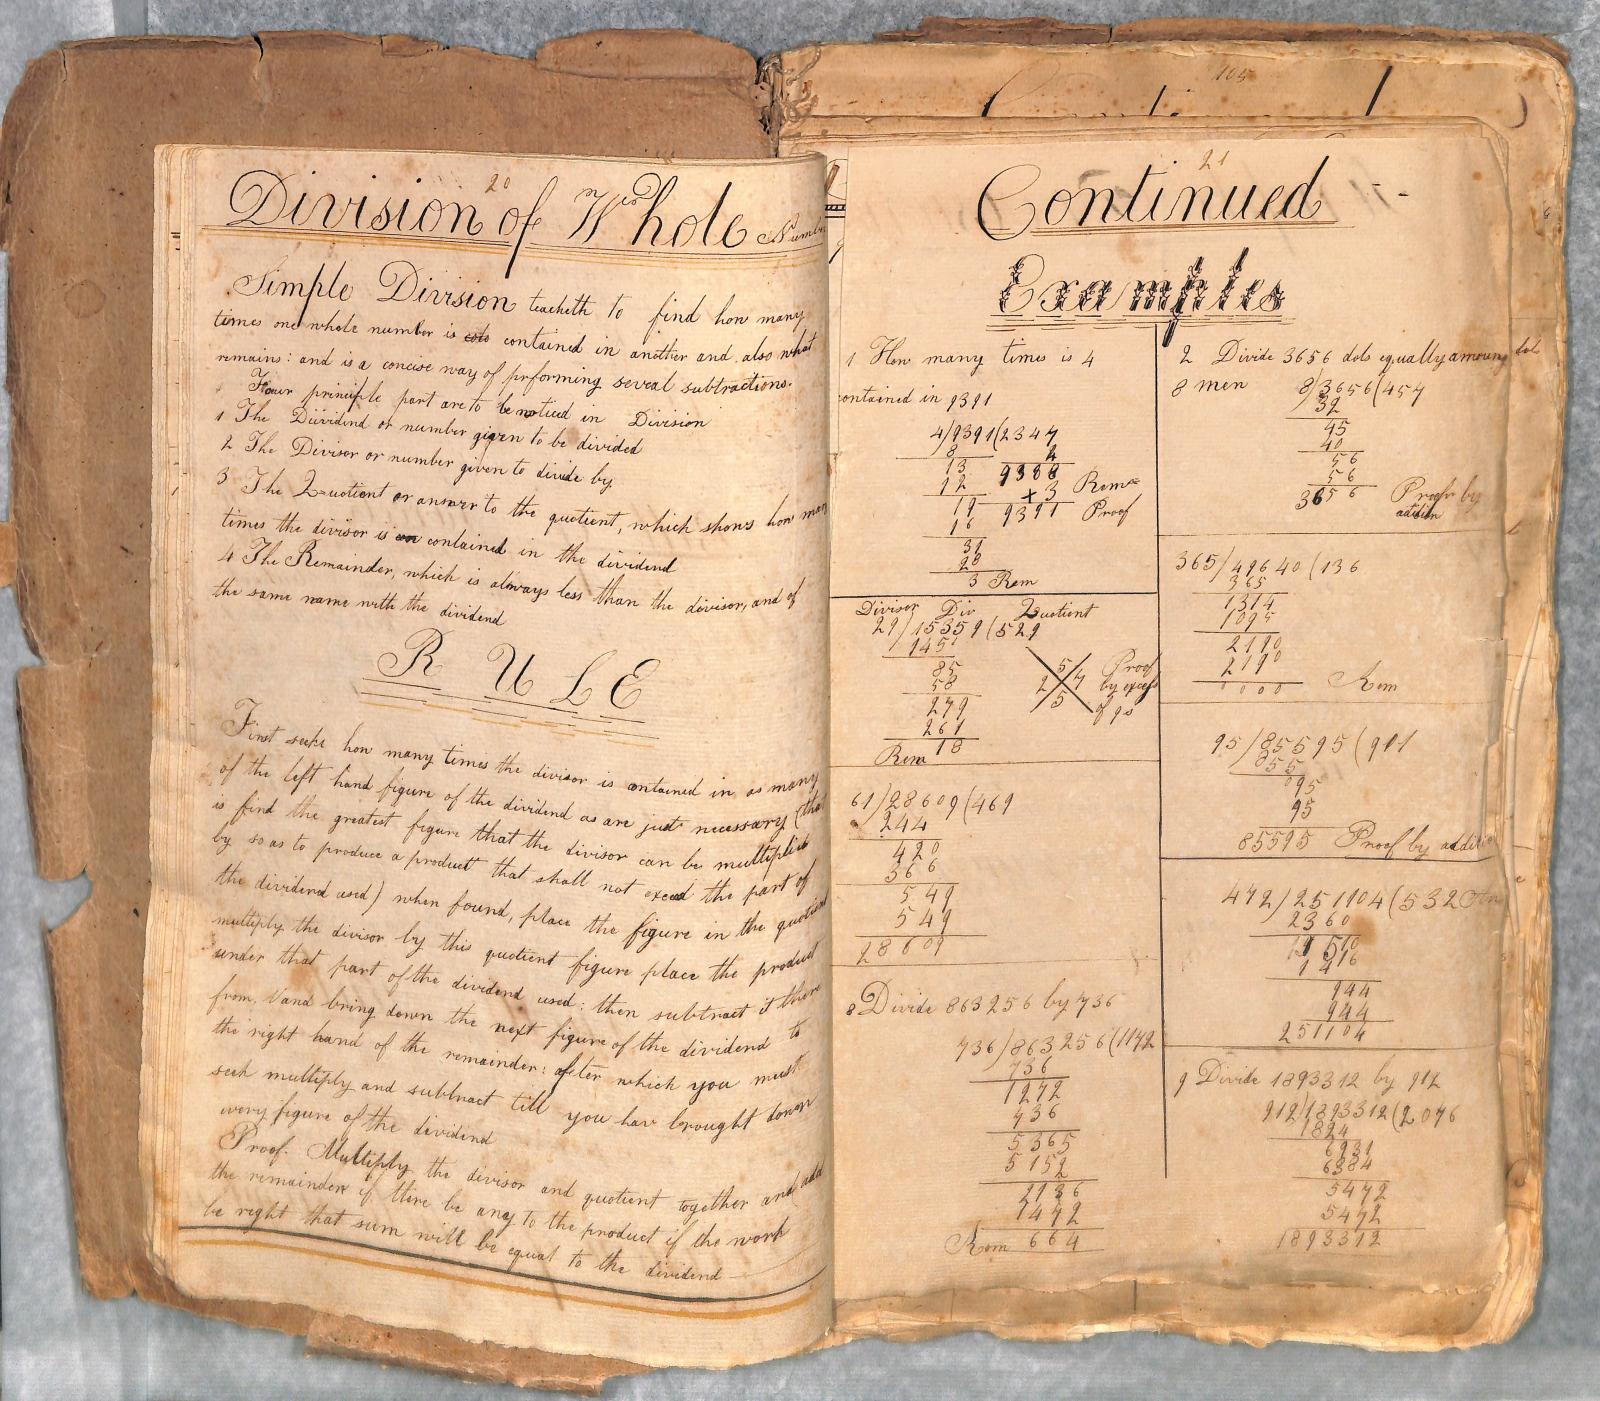 20
Division of Whole Number
Simple Division teacheth to find how many
times one whole number is contained in another and also what
remains: and is a concise way of prforming sevcal subtractions.
Four principle part are to be noticed in Division
1 The Diividend or number given to be divided
2 The Divisor or number given to divide by
3 The Quotient or answr to the quotient, which shows how man
times the divisor is contained in the dividend
4 The Remainder, which is always less than the divisor, and of
the same name with the dividend
RULE
First seeke how many times the divisor is ontained in as many
of the left hand figure of the dividend as are just necessary (that
is find the greatest figure that the divisor can be multiplied
by so as to produce a product that shall not exceed the part of
the dividend used) when found, place the figure in the quotien
multiply the divisor by this quotient figure place the product
under that part of the dividend used: then subtract it there
from, and bring down the next figure of the dividend to
the right hand of the remainder: after which you must
seek multiply and subtract till you hav brought down
every figure of the dividind
Proof. Multiply the divisor and quotient together and add
the remainder if there be any to the product if the work
be right that sum will be equal to the dividend
105
21
Continued
Examples
1 How many times is 4
contained in 9391
4/9391(2347
8 4
13 9388
12 +3 Rem
19 9391 Proof
16
31
28
3 Rem
2 Divide 3656 dols equally amoung dols
8 men 8/3656(457
32
45
40
56
56
3656 Proof by
addition
Divisor Div Quotient
29/15359(529
1451
85
58
279
261
Rem 18
5
2 7
5
Proof
by excess
of 9s
365/49640(136
365
1314
1095
2190
2190
0000 Rem
95/85595(901
855
095
95
85595 Proof by additi
61/28609(469
244
420
366
549
549
28609
472/251104(532
2360
1510
1416
944
944
251104
8 Divide 863256 by 736
736/863256(1172
736
1272
736
5365
5152
2136
1472
Rem 664
9 Divide 1893312 by 912
912/1893312(2076
1824
6931
6384
5472
5472
1893312